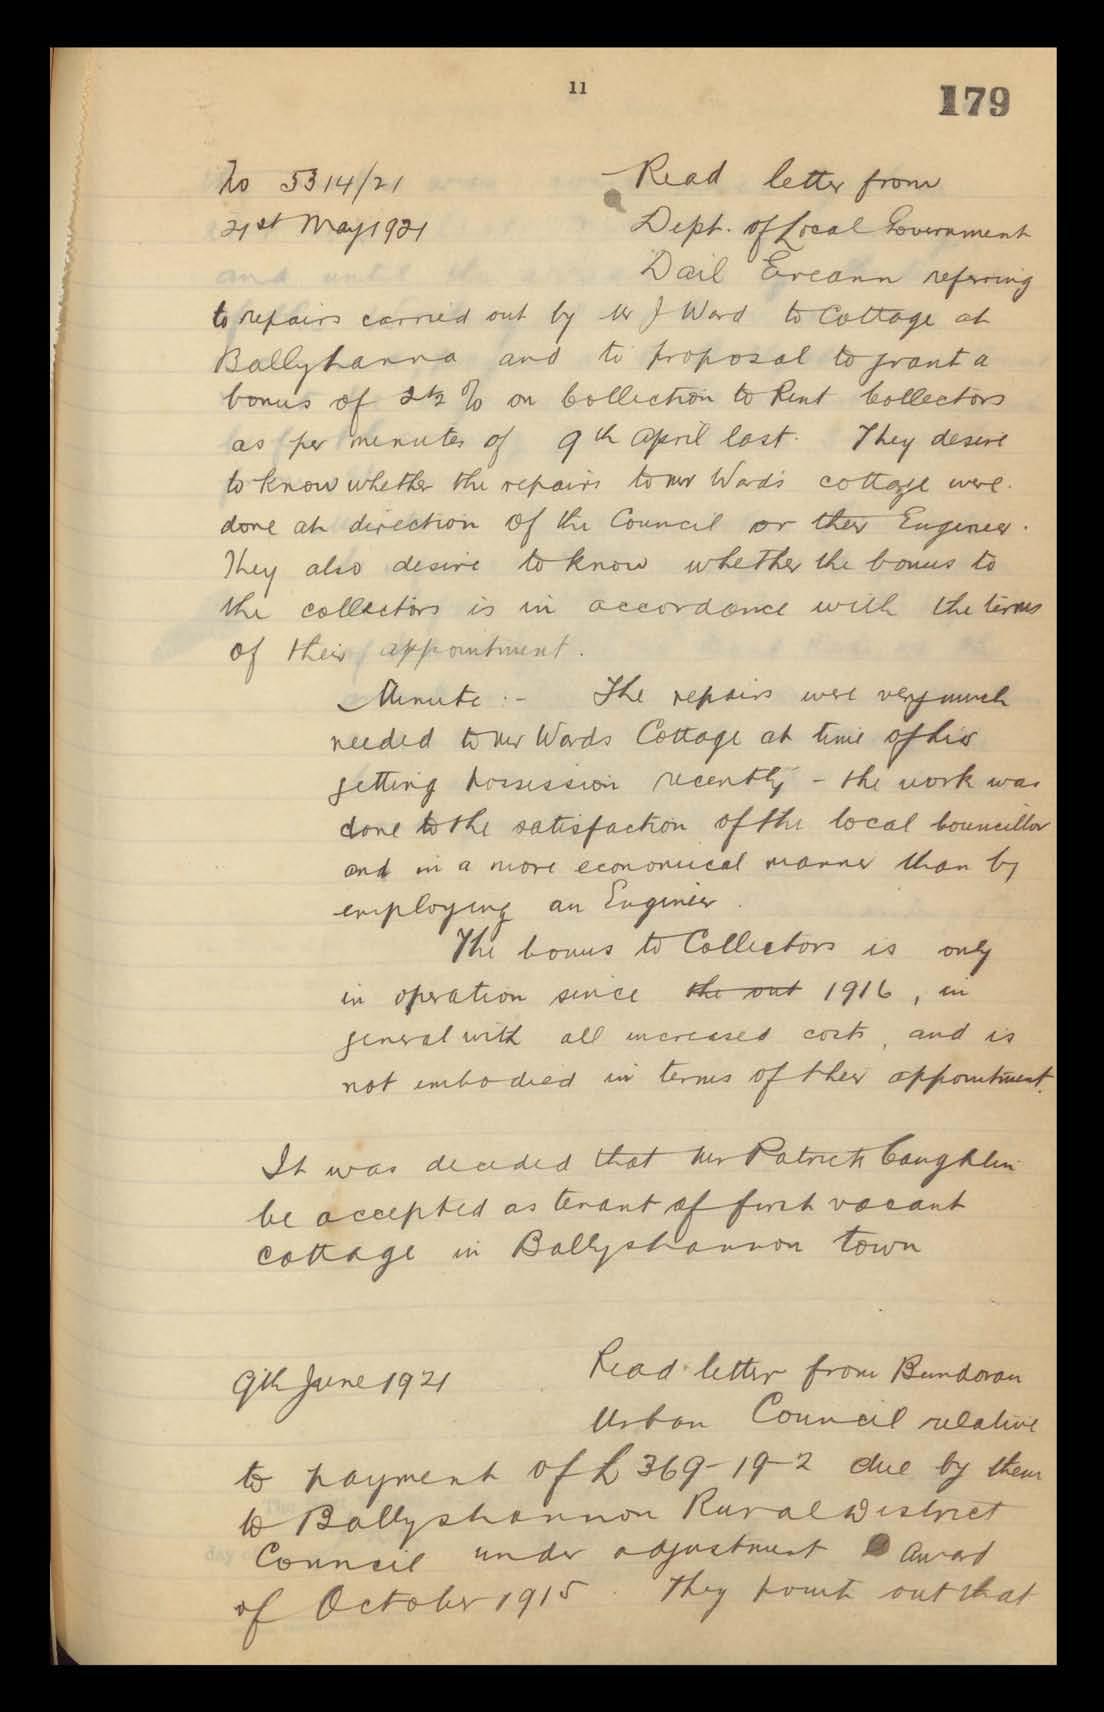 11
179
No 5314/21
Read letter from
21st May 1921
Dept. of Local Government
Dail Eireann referring
to repairs carried out by Mr J Ward to Cottage at
Ballyhanna and to proposal to grant a
bonus of 2½ % on Collection to Rent Collectors
as per minutes of 9th April last. They desire
to know whether the repairs to Mr Wards cottage were
done at direction of the Council or their Engineer.
They also desire to know whether the bonus to
the collectors is in accordance with the terms
of their appointment.
Minute :- The repairs were very much
needed to Mr Wards Cottage at time of his
getting possession recently - the work was
done to the satisfaction of the local Councillor
and in a more economical manner than by
employing an Engineer.
The bonus to Collectors is only
in operation since the out 1916, in
general with all increased costs, and is
not embodied in terms of their appointment.
It was decided that Mr Patrick Caughlin
be accepted as tenant of first vacant
cottage in Ballyshannon town
9th June 1921
Read letter from Bundoran
Urban Council relative
to payment of £369-19-2 due by them
to Ballyshannon Rural District
Council under adjustment Award
of October 1915. They point out that